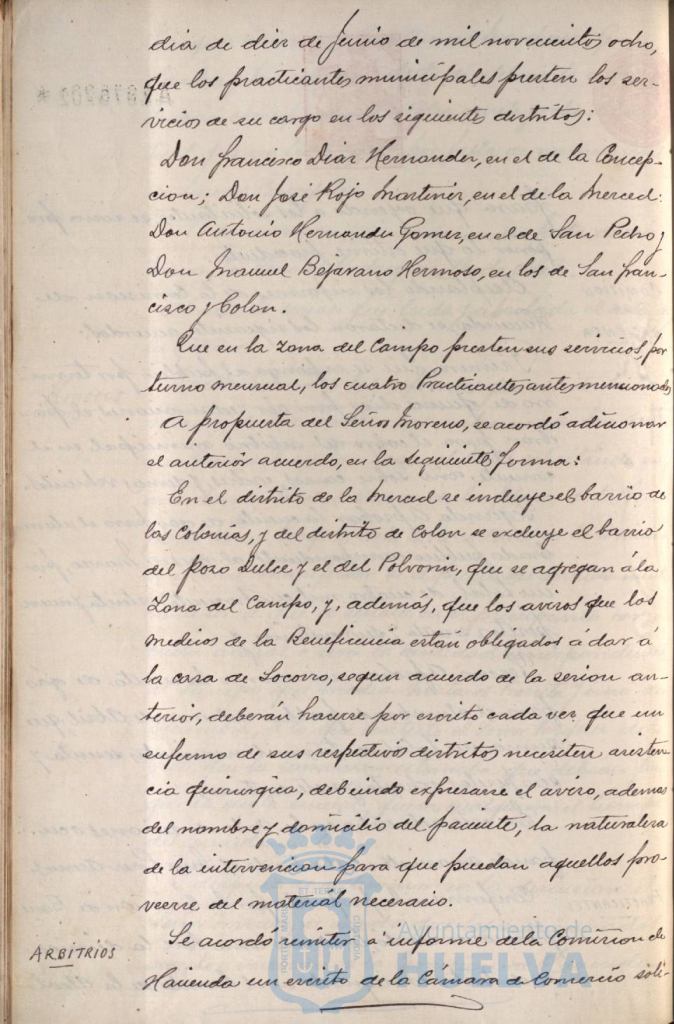 dia de diez de Junio de mil novecientos ocho,
que los practicantes municipales presten los ser-
vicios de su cargo en los siguientes distritos:
Don Francisco Diaz Hernandez, en el de la Concep-
cion; Don José Rojo Martinez, en el de la Merced:
Don Antonio Hernandez Gomez, en el de San Pedro y
Don Manuel Bejarano Hermoso, en los de San Fran-
cisco y Colon.
Que en la zona del Campo presten sus servicios, por
turno mensual, los cuatro Practicantes antes mencionados
A propuesta del Señor Moreno, se acordó adicionar
el anterior acuerdo, en la siguiente forma:
En el distrito de la Merced se incluye el barrio de
las Colonias, y del distrito de Colon se excluye el barrio
del Pozo Dulce y el del Polvorin, que se agregan á la
Zona del Campo, y, además, que los avisos que los
medicos de la Beneficencia están obligados á dar á
la casa de Socorro, segun acuerdo de la sesion an-
terior, deberán hacerse por escrito cada vez que un
enfermo de sus respectivos distritos necesiten asisten-
cia quirúrgica, debiendo expresarse el aviso, ademas
del nombre y domicilio del paciente, la naturaleza
de la intervencion para que puedan aquellos pro-
veerse del material necesario.
ARBITRIOS
Se acordó remitir á informe de la Comision de
Hacienda un escrito de la Cámara de Comercio soli-
Ayuntamiento de
HUELVA